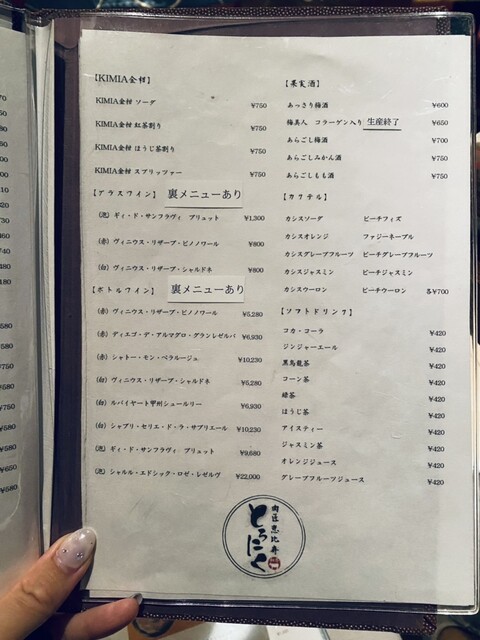 【KIMIA金柑】
KIMIA金柑 ソーダ ¥750
KIMIA金柑 紅茶割り ¥750
KIMIA金柑 ほうじ茶割り ¥750
KIMIA金柑 スプリッツァー ¥750
【グラスワイン】 裏メニューあり
(泡) ギィ・ド・サンフラヴィ ブリュット ¥1,300
(赤) ヴィニウス・リザーブ・ピノノワール ¥800
(白) ヴィニウス・リザーブ・シャルドネ ¥800
【ボトルワイン】 裏メニューあり
(赤) ヴィニウス・リザーブ・ピノノワール ¥5,280
(赤) ディエゴ・デ・アルマグロ・グランレゼルバ ¥6,930
(赤) シャトー・モン・ペラルージュ ¥10,230
(白) ヴィニウス・リザーブ・シャルドネ ¥5,280
(白) ルバイヤート甲州シュールリー ¥6,930
(白) シャブリ・セリエ・ド・ラ・サブリエール ¥10,230
(泡) ギィ・ド・サンフラヴィ ブリュット ¥9,680
(泡) シャルル・エドシック・ロゼ・レゼルヴ ¥22,000
【果実酒】
あっさり梅酒 ¥600
梅美人 コラーゲン入り 生産終了 ¥650
あらごし梅酒 ¥700
あらごしみかん酒 ¥750
あらごしもも酒 ¥750
【カクテル】
カシスソーダ ピーチフィズ
カシスオレンジ ファジーネーブル
カシスグレープフルーツ ピーチグレープフルーツ
カシスジャスミン ピーチジャスミン
カシスウーロン ピーチウーロン 各¥700
【ソフトドリンク】
コカ・コーラ ¥420
ジンジャーエール ¥420
黒烏龍茶 ¥420
コーン茶 ¥420
緑茶 ¥420
ほうじ茶 ¥420
アイスティー ¥420
ジャスミン茶 ¥420
オレンジジュース ¥420
グレープフルーツジュース ¥420
肉匠恵比寿
とろにく